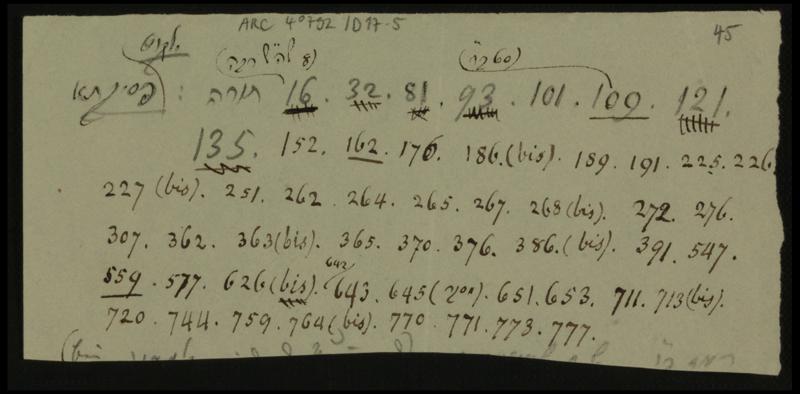 ARC 4°792 /D17-5
45
ילקוט
פסיקתא : תורה 16. 32. 81. 93. 101. 109. 121.
135. 152. 162. 176. 186. (bis). 189. 191. 225. 226.
227 (bis). 251. 262. 264. 265. 267. 268 (bis). 272. 276.
307. 362. 363 (bis). 365. 370. 376. 386. (bis). 391. 547.
559. 577. 626 (bis). 642 643. 645 ( ). 651. 653. 711. 713 (bis).
720. 744. 759. 764 (bis). 770. 771. 773. 777.